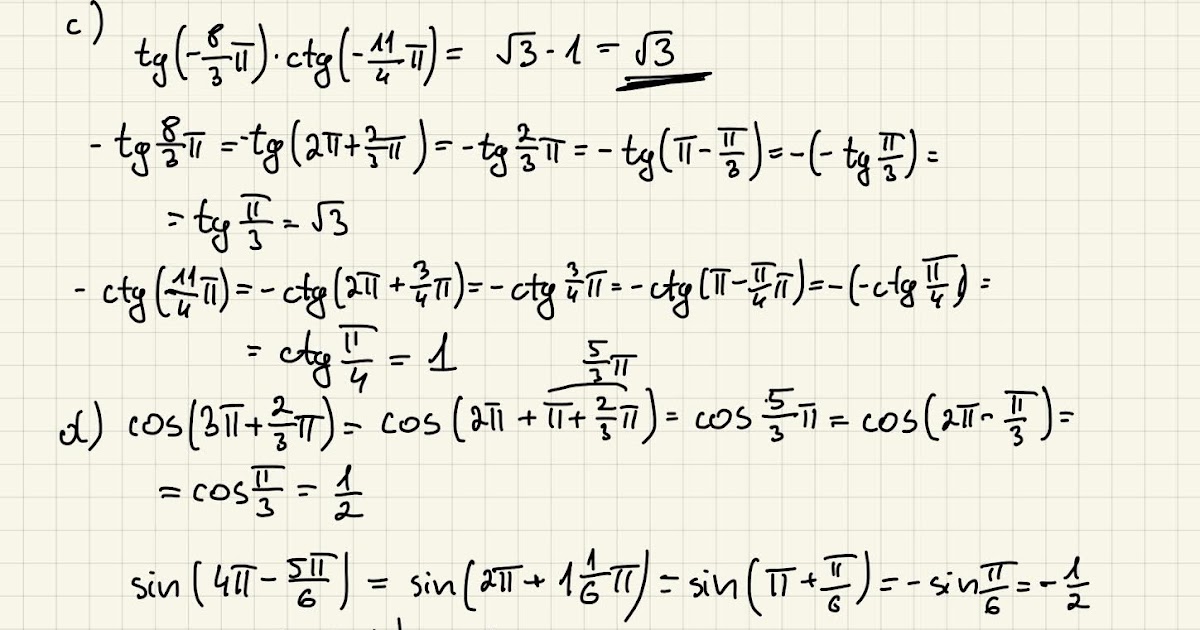 c)
tg(-8/3π)·ctg(-11/4π) = √3·1 = √3
- tg 8/3π = -tg(2π+2/3π) = -tg 2/3π = -tg(π-π/3) = -(-tg π/3) =
= tg π/3 = √3
- ctg(11/4π) = -ctg(2π+3/4π) = -ctg 3/4π = -ctg(π-π/4π) = -(-ctg π/4) =
= ctg π/4 = 1
5/3π
d) cos(3π+2/3π) = cos(2π+π+2/3π) = cos 5/3π = cos(2π-π/3) =
= cos π/3 = 1/2
sin(4π-5π/6) = sin(2π+1 1/6π) = sin(π+π/6) = -sin π/6 = -1/2